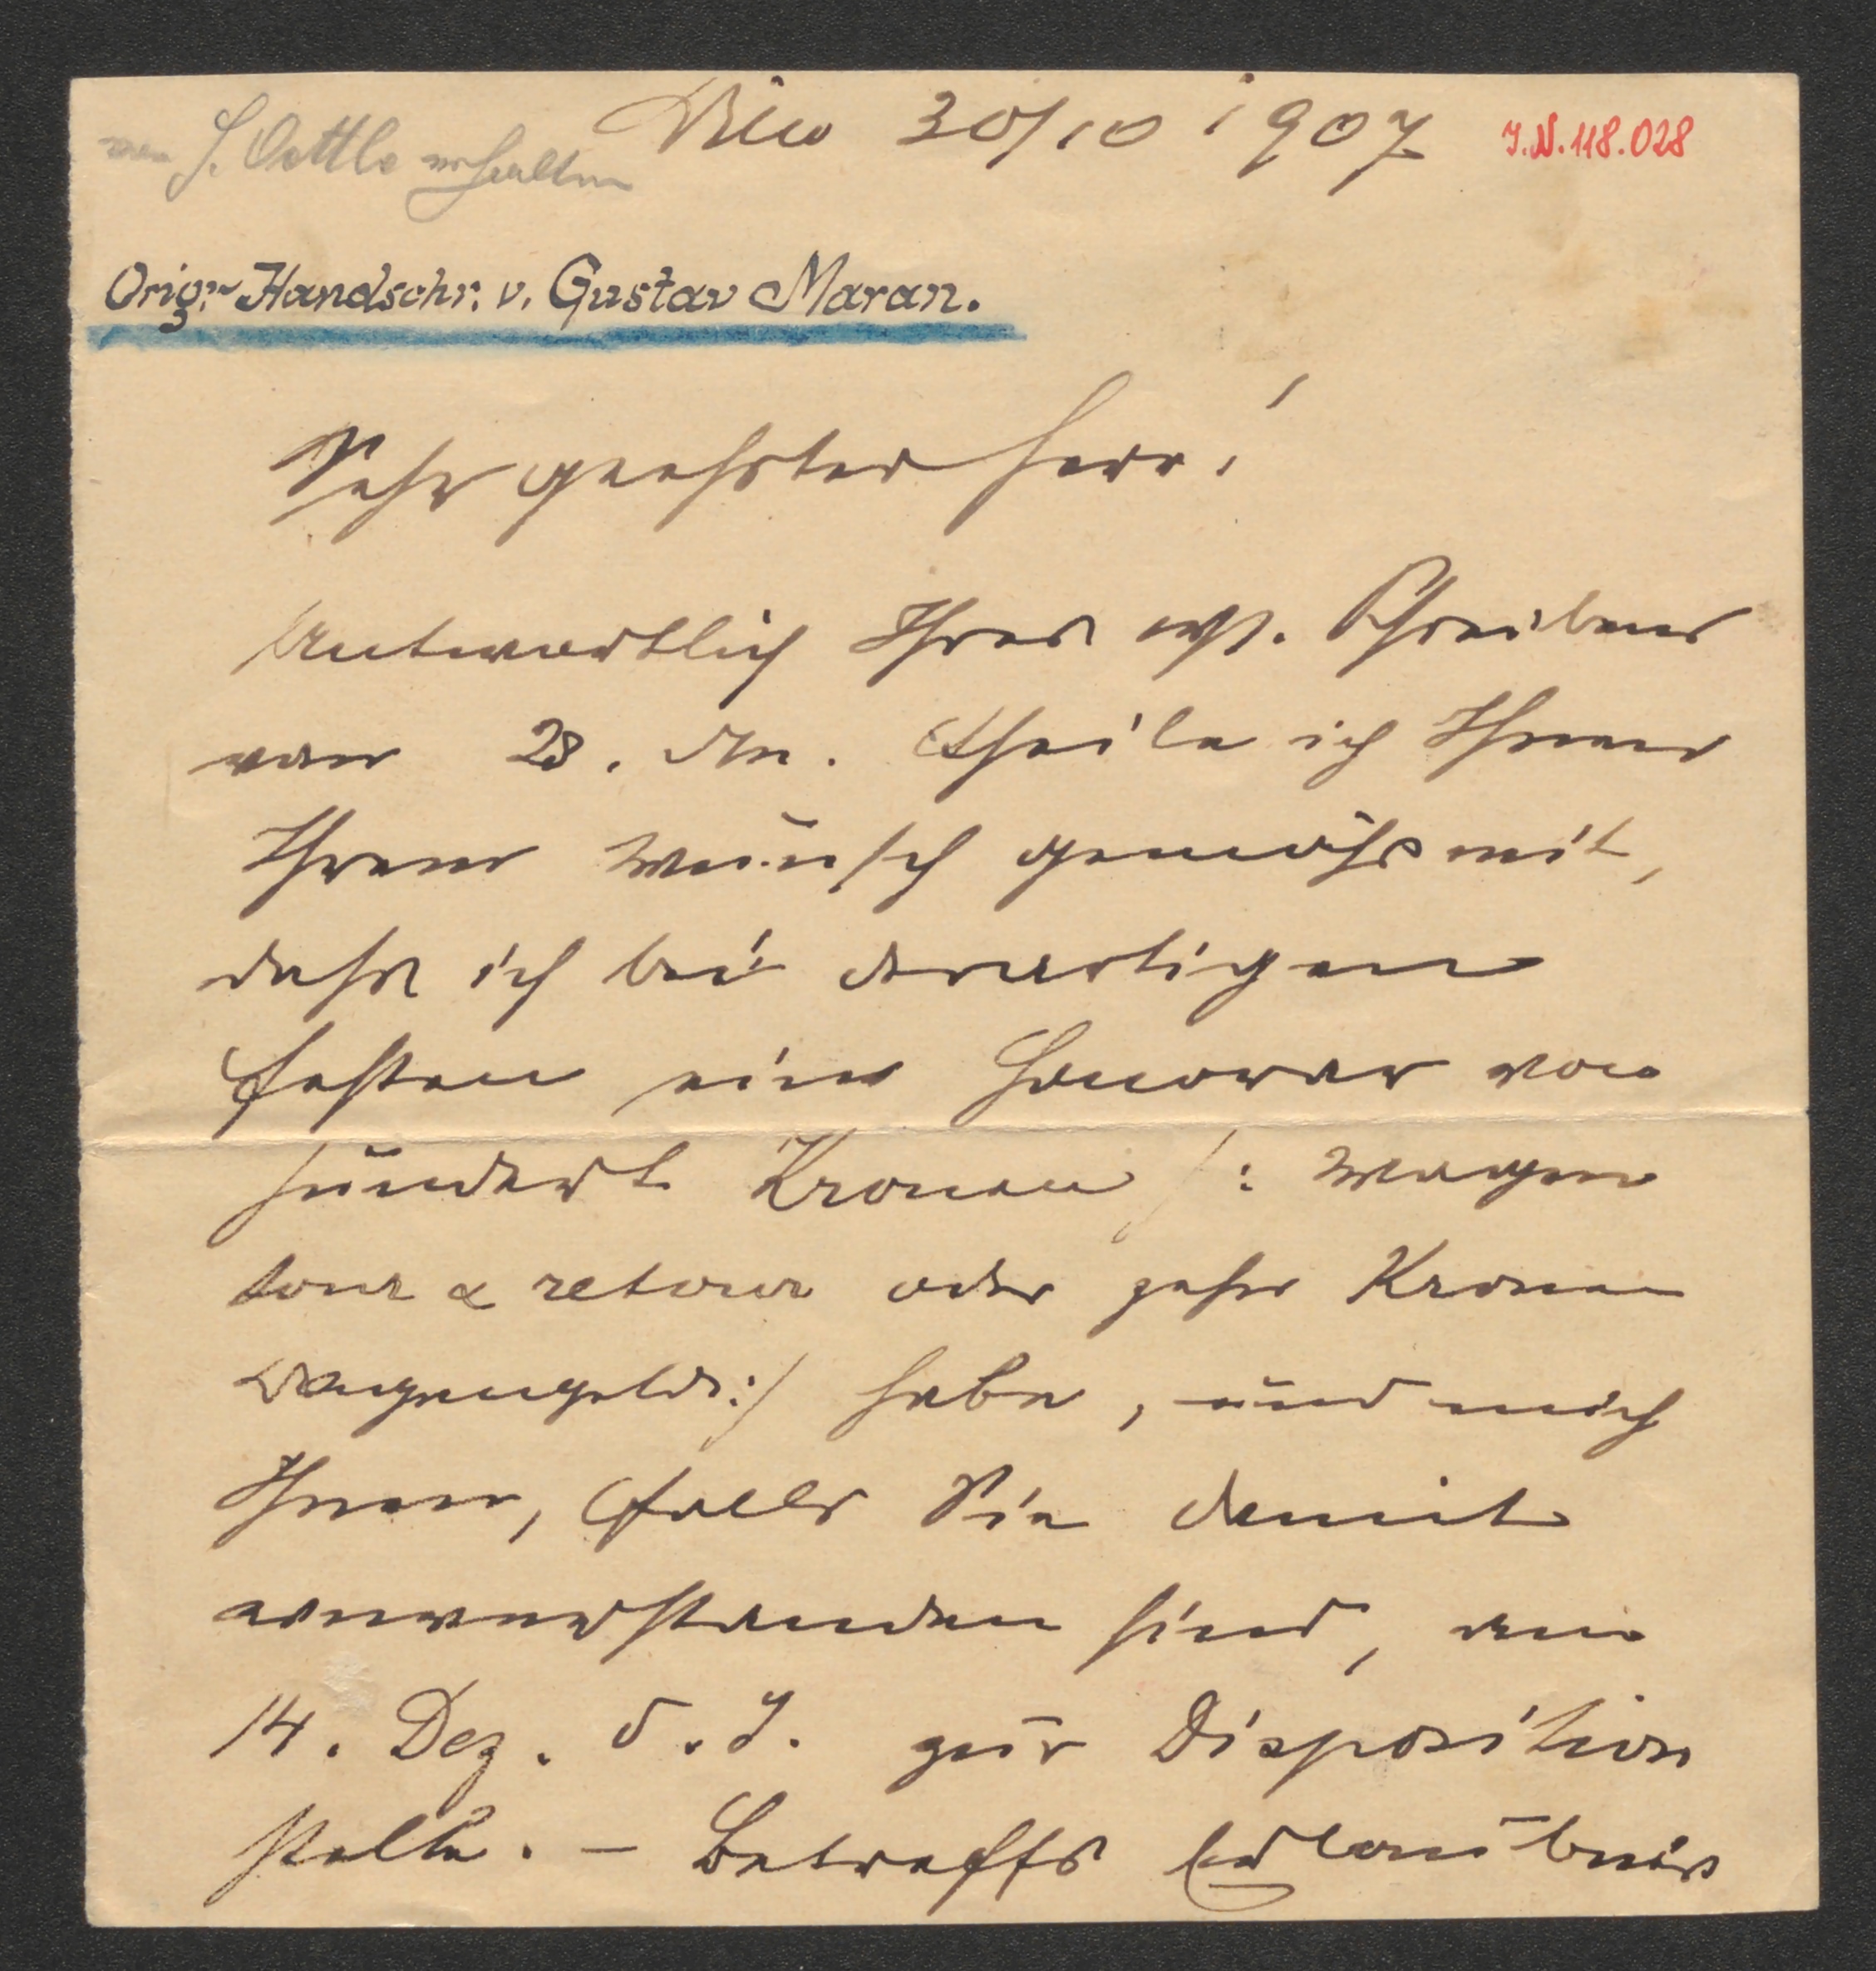 Wien 30/10 1907
J.N. 118.028
von J. Oettle erhalten
Orig.-Handschr. v. Gustav Maran.
Sehr geehrter Herr!
Antwortlich Ihres Schreibens
vom 28. theile ich Ihnen
Ihrem Wunsch gemäß mit,
daß ich bei derartigen
Festen ein Honorar von
hundert Kronen /: Wagen
tour & retour oder zehn Kronen
Wagengeld :/ habe, und mich
Ihnen, falls Sie damit
einverstanden sind, am
14. Dez. d. J. zur Disposition
stelle. – Betreffs Erlaubnis